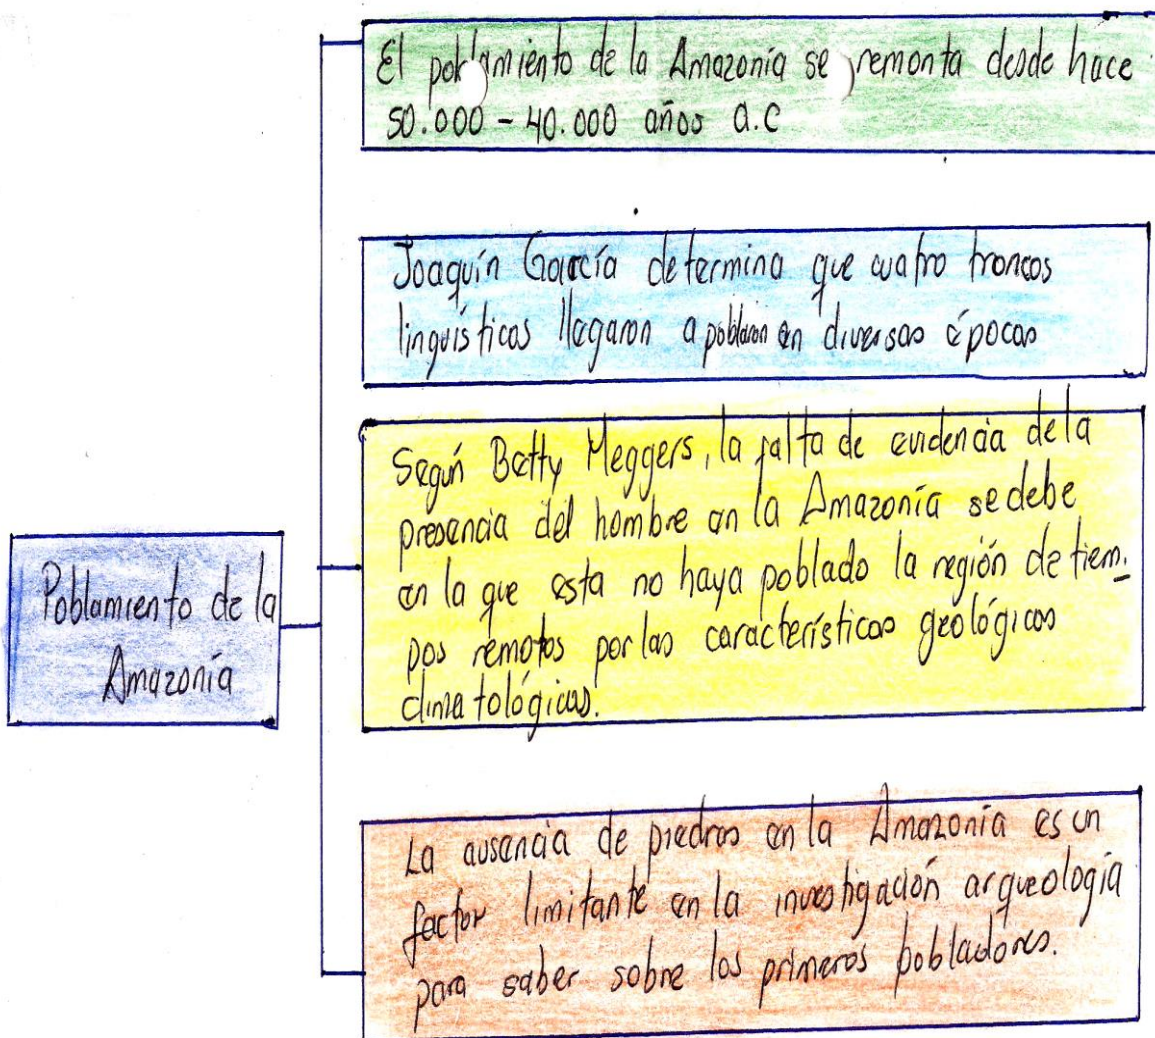 El poblamiento de la Amazonía se remonta desde hace
50.000 - 40.000 años a.c
Joaquín García determina que cuatro troncos
linguísticos llegaron a poblaron en diversas épocas
Según Betty Meggers, la falta de evidencia de la
presencia del hombre en la Amazonía se debe
en la que esta no haya poblado la región de tiem-
pos remotos por las características geológicas
climatológicas.
Poblamiento de la
Amazonía
La ausencia de piedras en la Amazonía es un
factor limitante en la investigación arqueología
para saber sobre los primeros pobladores.